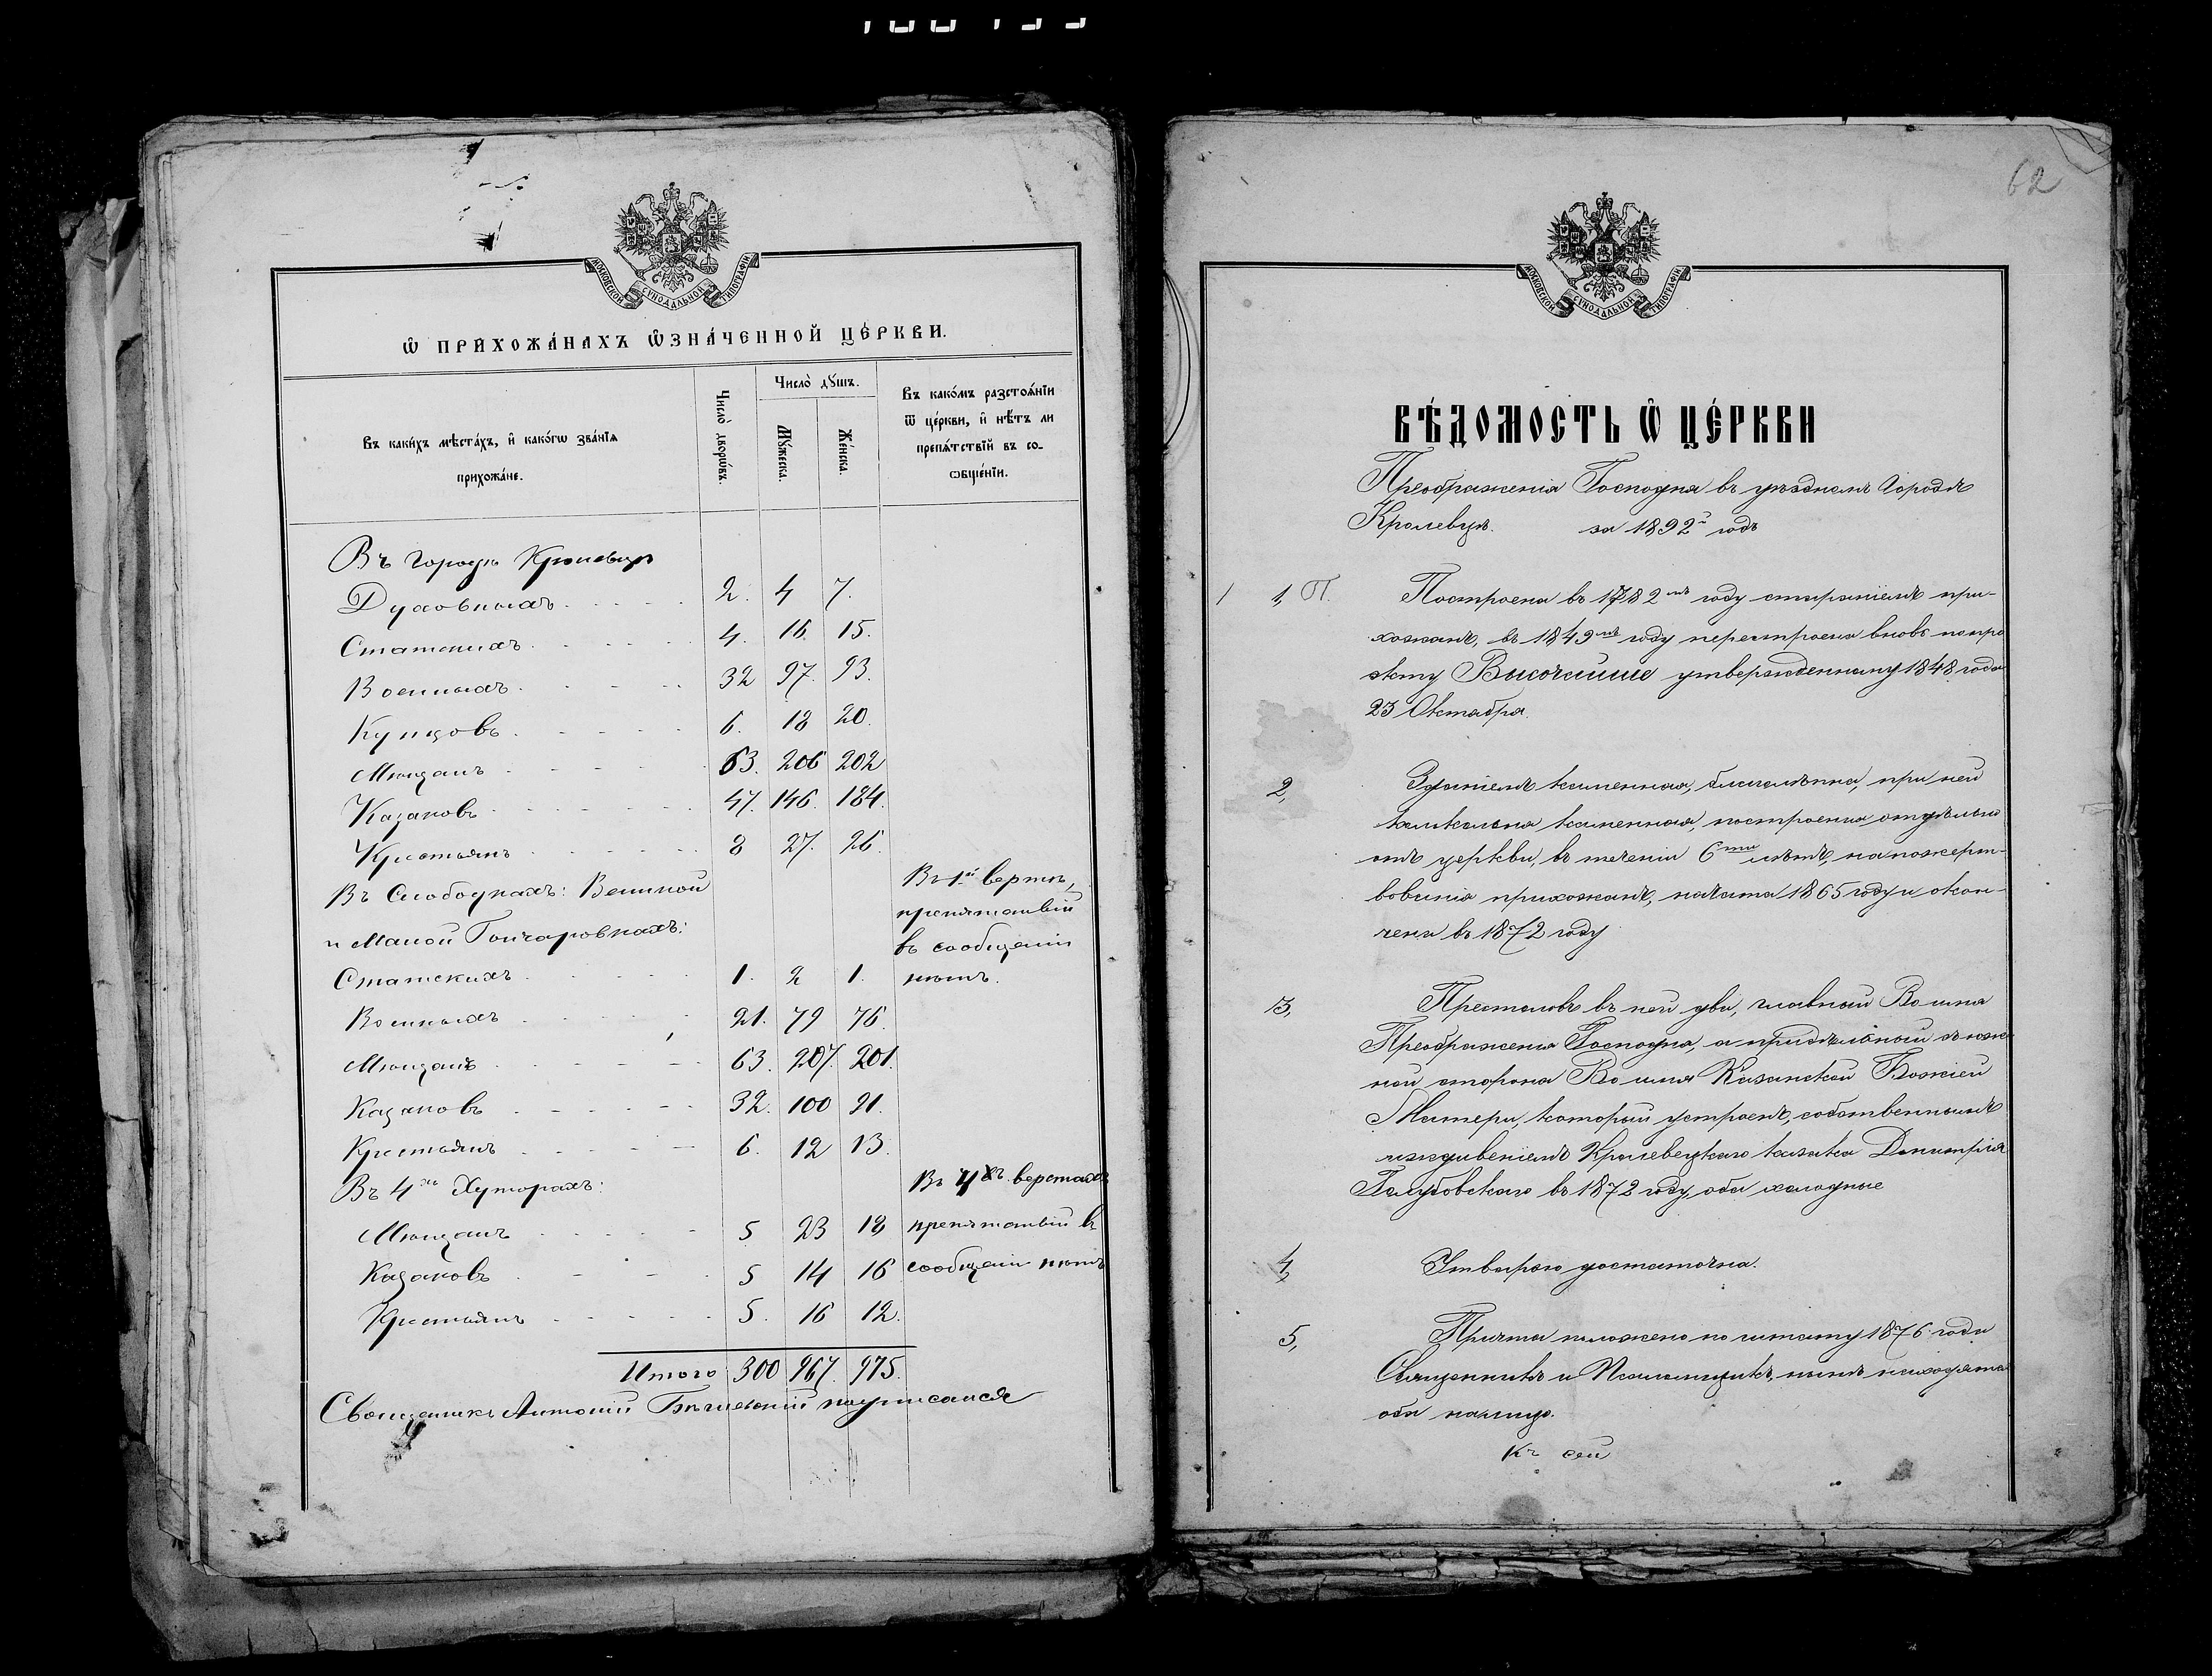 МОСКОВСКОЙ СѴНОДАЛЬНОЙ ТИПОГРАФІИ
Ѡ ПРИХОЖА́НАХЪ Ѡ҆ЗНА́ЧЕННОЙ ЦЕ́РКВИ.
Въ каки́хъ мѣста́хъ, и҆ како́гѡ зва́нїѧ прихожа́не.
Число̀ дворѡ́въ.
Число̀ дꙋ́шъ.
Мꙋ́жеска.
Же́нска.
Въ како́мъ разстоѧ́нїи
ѿ це́ркви, и҆ нѣ́тъ ли
препѧ́тствїй въ со-
ѻбще́нїи.
Въ городѣ Кролевцѣ
Духовныхъ 2. 4 7.
Статскихъ 4. 16. 15.
Военныхъ 32 97. 93.
Купцовъ 6. 18 20.
Мѣщанъ 63. 206 202
Казаковъ 47. 146. 184.
Крестьянъ 8 27. 26.
Въ Слободкахъ: Великой Въ 1й верстѣ,
и Малой Гончаровкахъ: препятствій
въ сообщеніи
Статскихъ 1. 2 1. нѣтъ.
Военныхъ 21. 79 76.
Мѣщанъ 63. 207. 201.
Казаковъ 32. 100 91.
Крестьянъ 6. 12 13.
Въ 4хъ Хуторахъ: Въ 4хъ верстахъ
Мѣщанъ 5 23 18 препятствій въ
Казаковъ 5 14 16 сообщеніи нѣтъ
Крестьянъ 5. 16 12.
Итого 300 967. 975.
Священникъ Антоній подписался
62
МОСКОВСКОЙ СѴНОДАЛЬНОЙ ТИПОГРАФІИ
ВѢ́ДОМОСТЬ Ѡ ЦЕ́РКВИ
Преображенія Господня въ уѣздномъ городѣ
Кролевцѣ. за 1892й годъ
1, П. Построена въ 1782мъ году стараніемъ при-
хожанъ, въ 1849мъ году перестроена вновь по про
экту Высочайше утвержденному 1848 года
23 Октября.
2, Зданіемъ каменная, благолѣпна, при ней
колокольня каменная, построена отдѣльно
отъ церкви, въ теченіи 6ти лѣтъ, на пожерт-
вованія прихожанъ, начата 1865 году и окон-
чена въ 1872 году
3, Престоловъ въ ней два, главный Во имя
Преображенія Господня, а придѣльный съ юж-
ной стороны Во имя Казанской Божіей
Матери, который устроенъ, собственнымъ
иждивеніемъ Кролевецкаго казака Димитрія
Голубовскаго въ 1872 году, оба холодные
4, Утварью достаточна.
5, Причта положено по штату 1876 года
Священникъ и Псаломщикъ, нынѣ находятся
оба налицо.
Къ сей